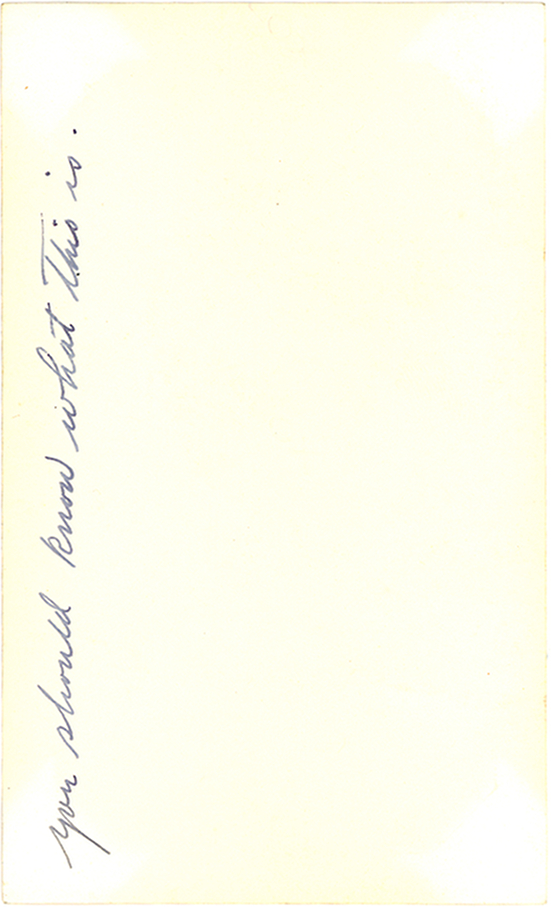 you should know what this is.